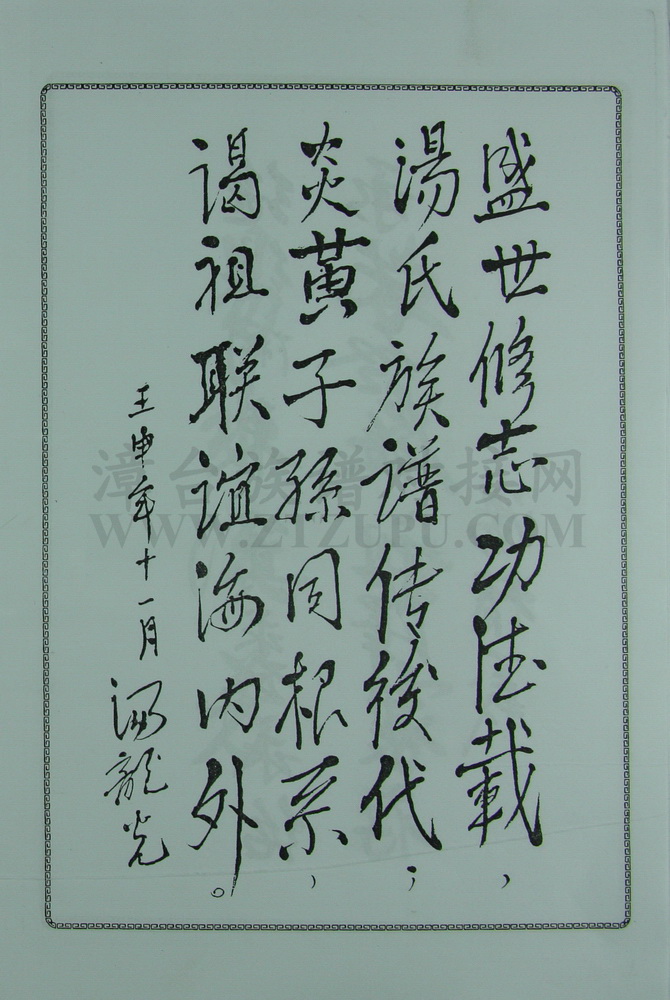 盛世修志功德載，
湯氏族譜传後代；
炎黄子孫同根系，
谒祖联谊海内外。
壬申年十一月
湯龍光
漳台族譜对接网
WWW.ZTZUPU.COM